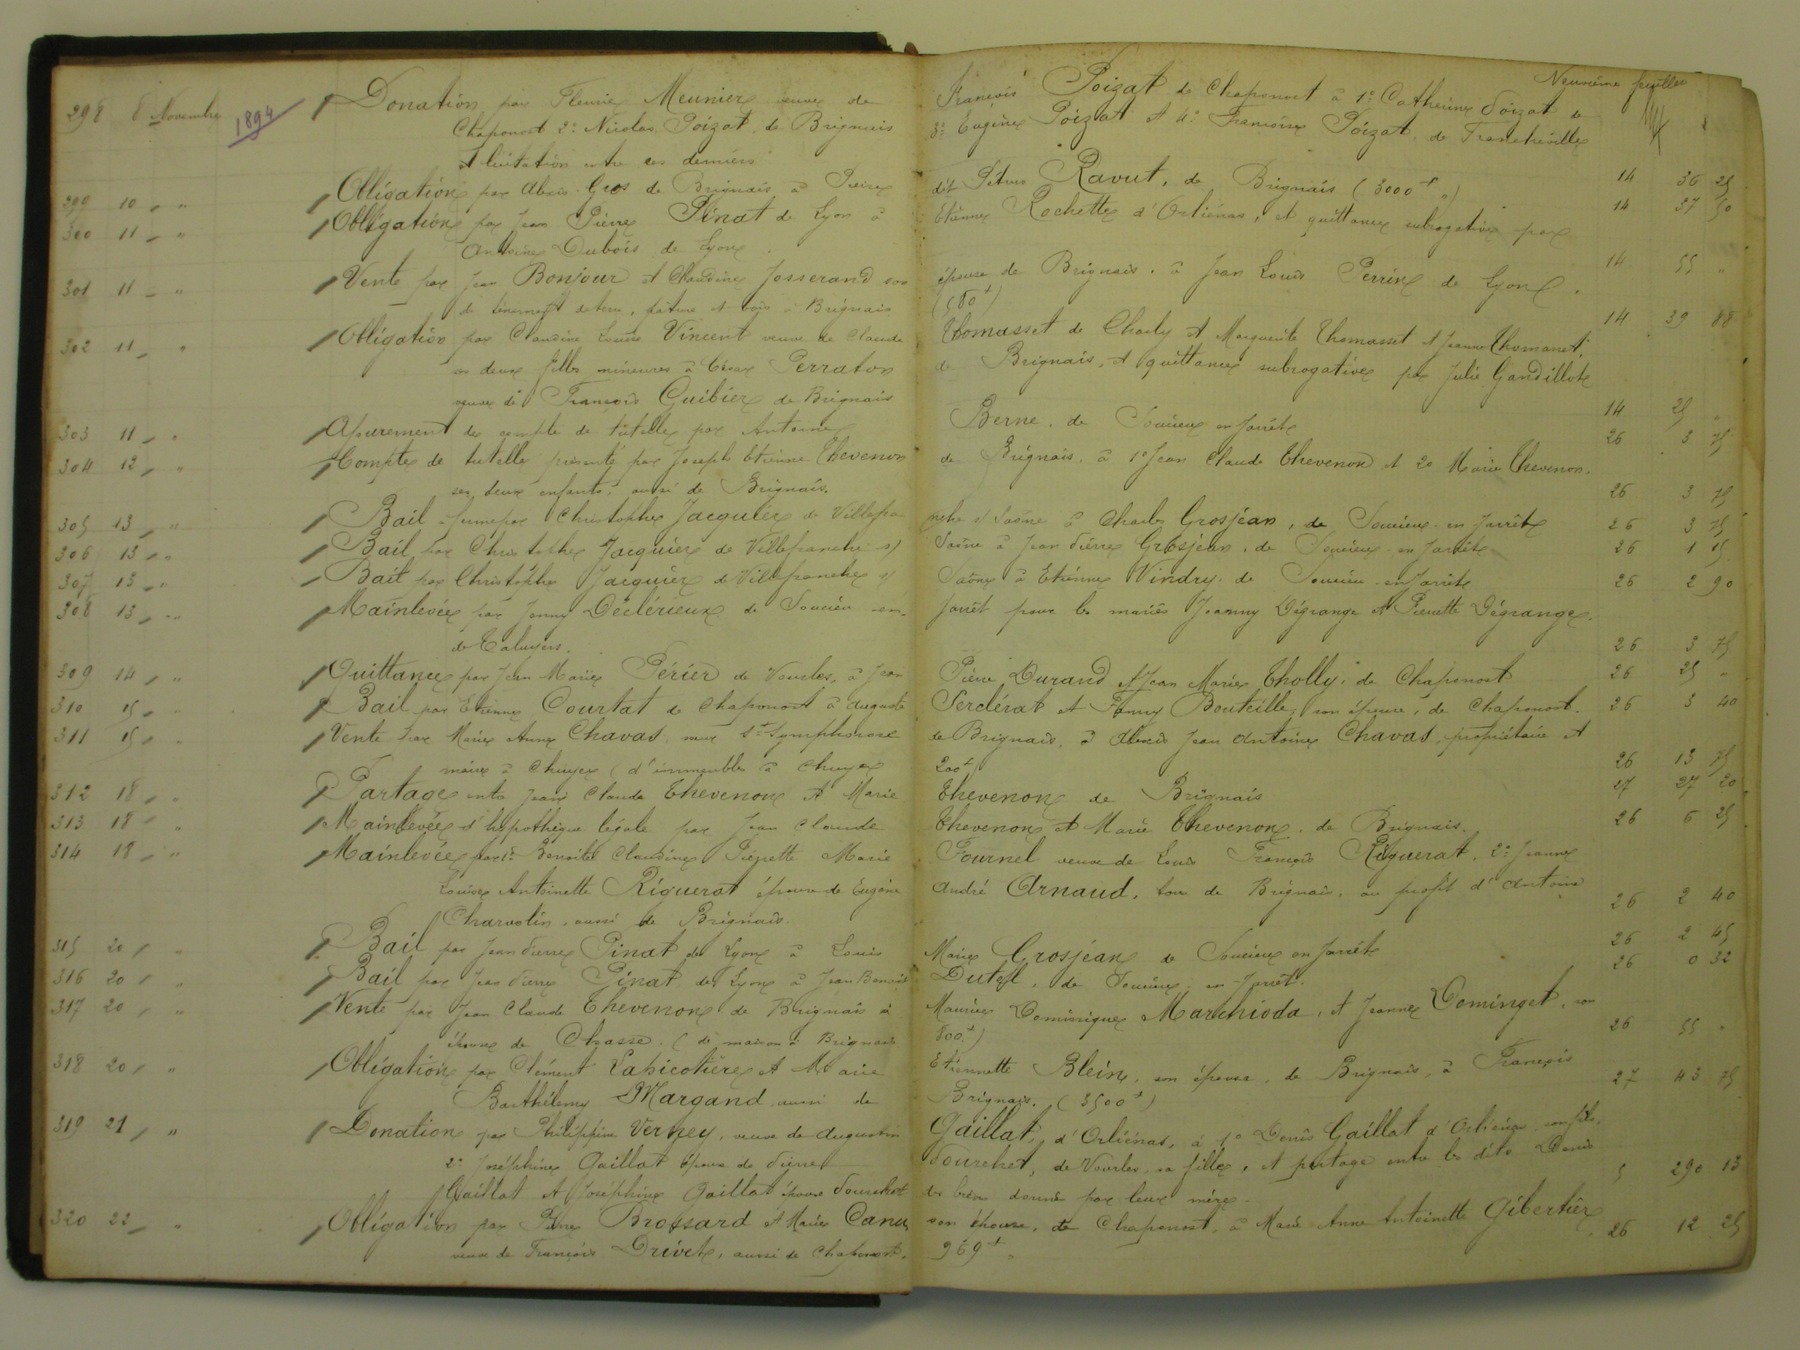 Neuvième feuillet
298 8 Novembre 1894 Donation par Fleurie Meunier veuve de François Poizat de Chaponost à 1° Catherine Poizat de
Chaponost 2° Nicolas Poizat de Brignais 3° Eugène Poizat et 4° Françoise Poizat de Francheville
et licitation entre ces derniers 14 36 25
299 10 " " Obligation par Alexis Gros de Brignais à Pierre dit Pétrus Ravut, de Brignais (3000f ") 14 37 50
300 11 " " Obligation par Jean Pierre Pinat de Lyon à Etienne Rochette d'Orliénas, et quittance subrogative par
Antoine Dubois de Lyon 14 55 "
301 11 " " Vente par Jean Bonjour et Claudine Josserand son épouse de Brignais, à Jean Louis Perrin de Lyon.
de tènement de terre, pâture et bois à Brignais (580f) 14 39 88
302 11 " " Obligation par Claudine Louise Vincent veuve de Claude Thomasset de Charly et Marguerite Thomasset et Jeanne Thomasset,
ses deux filles mineures à César Perraton de Brignais, et quittance subrogative par Julie Gandillot
veuve de François Guibier de Brignais 14 25 "
303 11 " " Apurement de compte de tutelle par Antoine Berne, de Soucieu en Jarrêt 26 3 75
304 12 " " Compte de tutelle présenté par Joseph Etienne Thevenon de Brignais, à 1° Jean Claude Thevenon et 2° Marie Thevenon.
ses deux enfants, aussi de Brignais. 26 3 75
305 13 " " Bail à ferme par Christophe Jacquier de Villefranche s/ Saône à Charles Grosjean, de Soucieu-en-Jarrêt 26 3 75
306 13 " " Bail par Christophe Jacquier de Villefranche s/ Saône à Jean Pierre Grosjean, de Soucieu-en-Jarrêt 26 1 15
307 13 " " Bail par Christophe Jacquier de Villefranche s/ Saône à Etienne Vindry de Soucieu-en-Jarrêt 26 2 90
308 13 " " Mainlevée par Jenny Déclérieux de Soucieu-en-Jarrêt pour les mariés Joanny Dégrange et Pierrette Dégrange
de Taluyers. 26 3 75
309 14 " " Quittance par Jean Marie Périer de Vourles, à Jean Pierre Durand et Jean Marie Tholly, de Chaponost 26 25 "
310 15 " " Bail par Etienne Courtat de Chaponost à Auguste Serclérat et Fanny Bouteille, son épouse, de Chaponost. 26 3 40
311 15 " " Vente par Marie Anne Chavas, veuve St Symphorose de Brignais, à Alexis Jean Antoine Chavas, propriétaire et
maire à Chuyer (d'immeubles à Chuyer 200f) 26 13 75
312 18 " " Partage entre Jean Claude Thevenon et Marie Thevenon de Brignais 27 27 20
313 18 " " Mainlevée d'hypothèque légale par Jean Claude Thevenon et Marie Thevenon, de Brignais. 26 6 25
314 18 " " Mainlevée par 1° Benoîte Claudine Pierrette Marie Fournel veuve de Louis François Riguerat, 2° Jeanne
Louise Antoinette Riguerat épouse de Eugène André Arnaud, tous de Brignais, au profit d'Antoine
Charvolin, aussi de Brignais. 26 2 40
315 20 " " Bail par Jean Pierre Pinat de Lyon à Louis Marie Grosjean de Soucieu en Jarrêt 26 2 45
316 20 " " Bail par Jean Pierre Pinat de Lyon à Jean Benoit Dutel, de Soucieu-en-Jarrêt. 26 0 32
317 20 " " Vente par Jean Claude Thevenon de Brignais à Maurice Dominique Marchioda, et Jeanne Dominget, son
épouse de Chasse. (de maison à Brignais 800f) 26 55 "
318 20 " " Obligation par Clément Lapicotière et Marie Etiennette Blein, son épouse, de Brignais, à François
Barthélemy Margand, aussi de Brignais. (3500f) 27 43 75
319 21 " " Donation par Philippine Verney, veuve de Augustin Gaillat, d'Orliénas, à 1° Denis Gaillat d'Orliénas, son fils.
2° Joséphine Gaillat épouse de Pierre Pourchet, de Vourles, sa fille, et partage entre les dits Denis
Gaillat et Joséphine Gaillat épouse Pourchet des biens donnés par leur mère. 5 290 13
320 22 " " Obligation par Pierre Brossard et Marie Canu son épouse, de Chaponost, à Marie Anne Antoinette Gibertier
veuve de François Drivet, aussi de Chaponost. 969f " 26 12 25